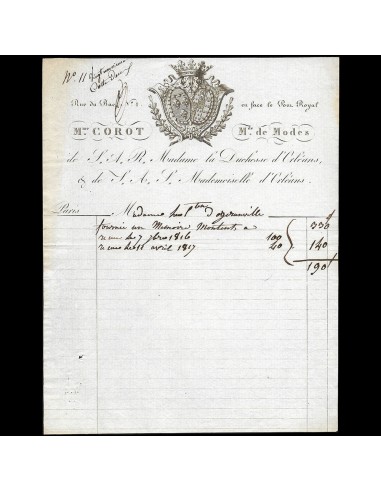 No 11
Rue du Bacq, No 1. en face le Pont Royal
Mme COROT Mde de Modes
de S. A. R. Madame la Duchesse d'Orléans,
& de S. A. S. Mademoiselle d'Orléans.
Paris Madame
fournie un Memoire Montant a 330 f
recu le 7 7bre 1816 100
avril 1817 40 140
190